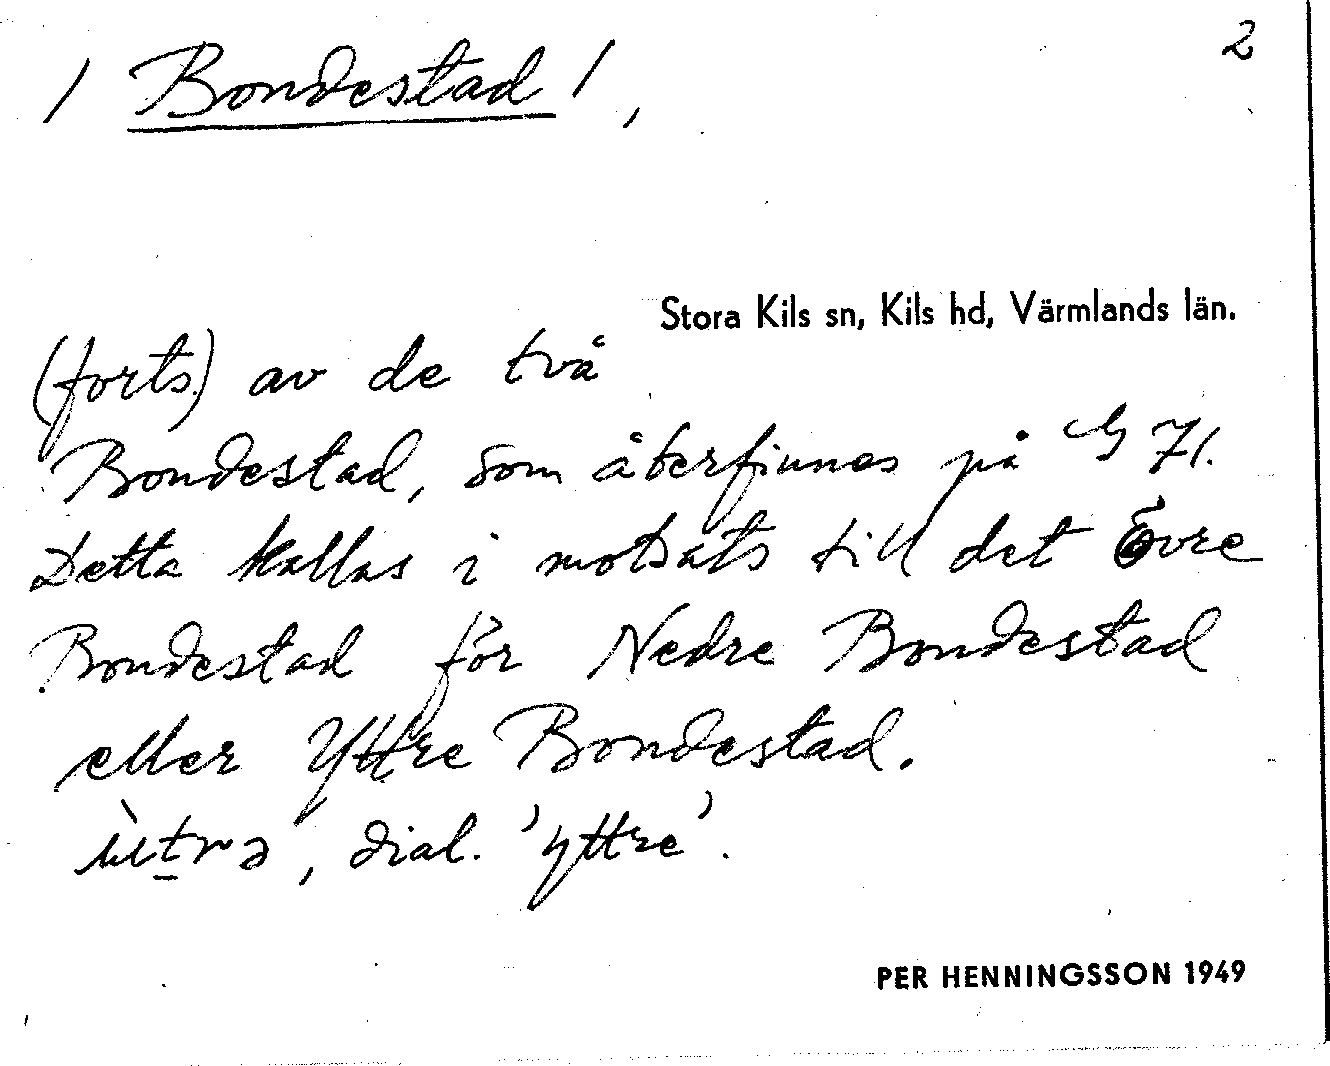 / Bondestad /, 2
Stora Kils sn, Kils hd, Värmlands län.
(forts) av de två
Bondestad, som återfinnes på G 71.
Detta kallas i motsats till det Övre
Bondestad för Nedre Bondestad
eller Yttre Bondestad.
, dial. 'yttre'.
PER HENNINGSSON 1949